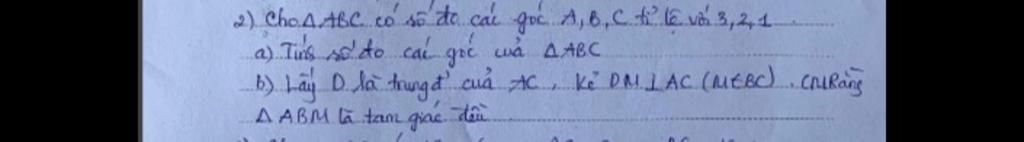 2) Cho △ABC có số đo các góc A, B, C tỉ lệ với 3, 2, 1
a) Tính số đo các góc của △ABC
b) Lấy D là trung đ' của AC, kẻ DM ⊥ AC (M∈BC). CMRằng
△ABM là tam giác đều